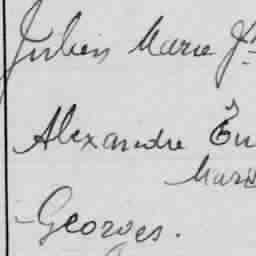 Julien Marie J
Alexandre Eu
Marie
Georges.